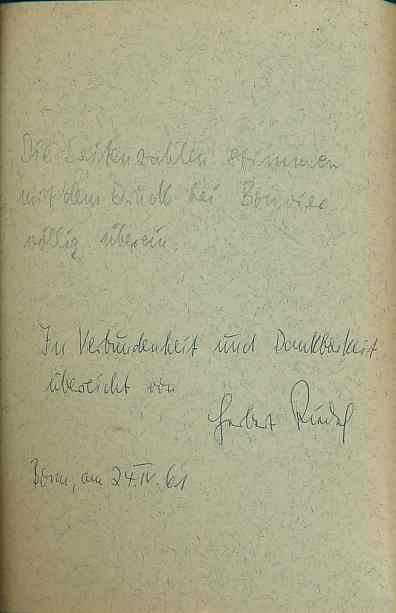 Die Seitenzahlen stimmen
mit dem Druck bei Bouvier
völlig überein.
In Verbundenheit und Dankbarkeit
überreicht von
Herbert Riedel
Bonn, am 24.IV.61